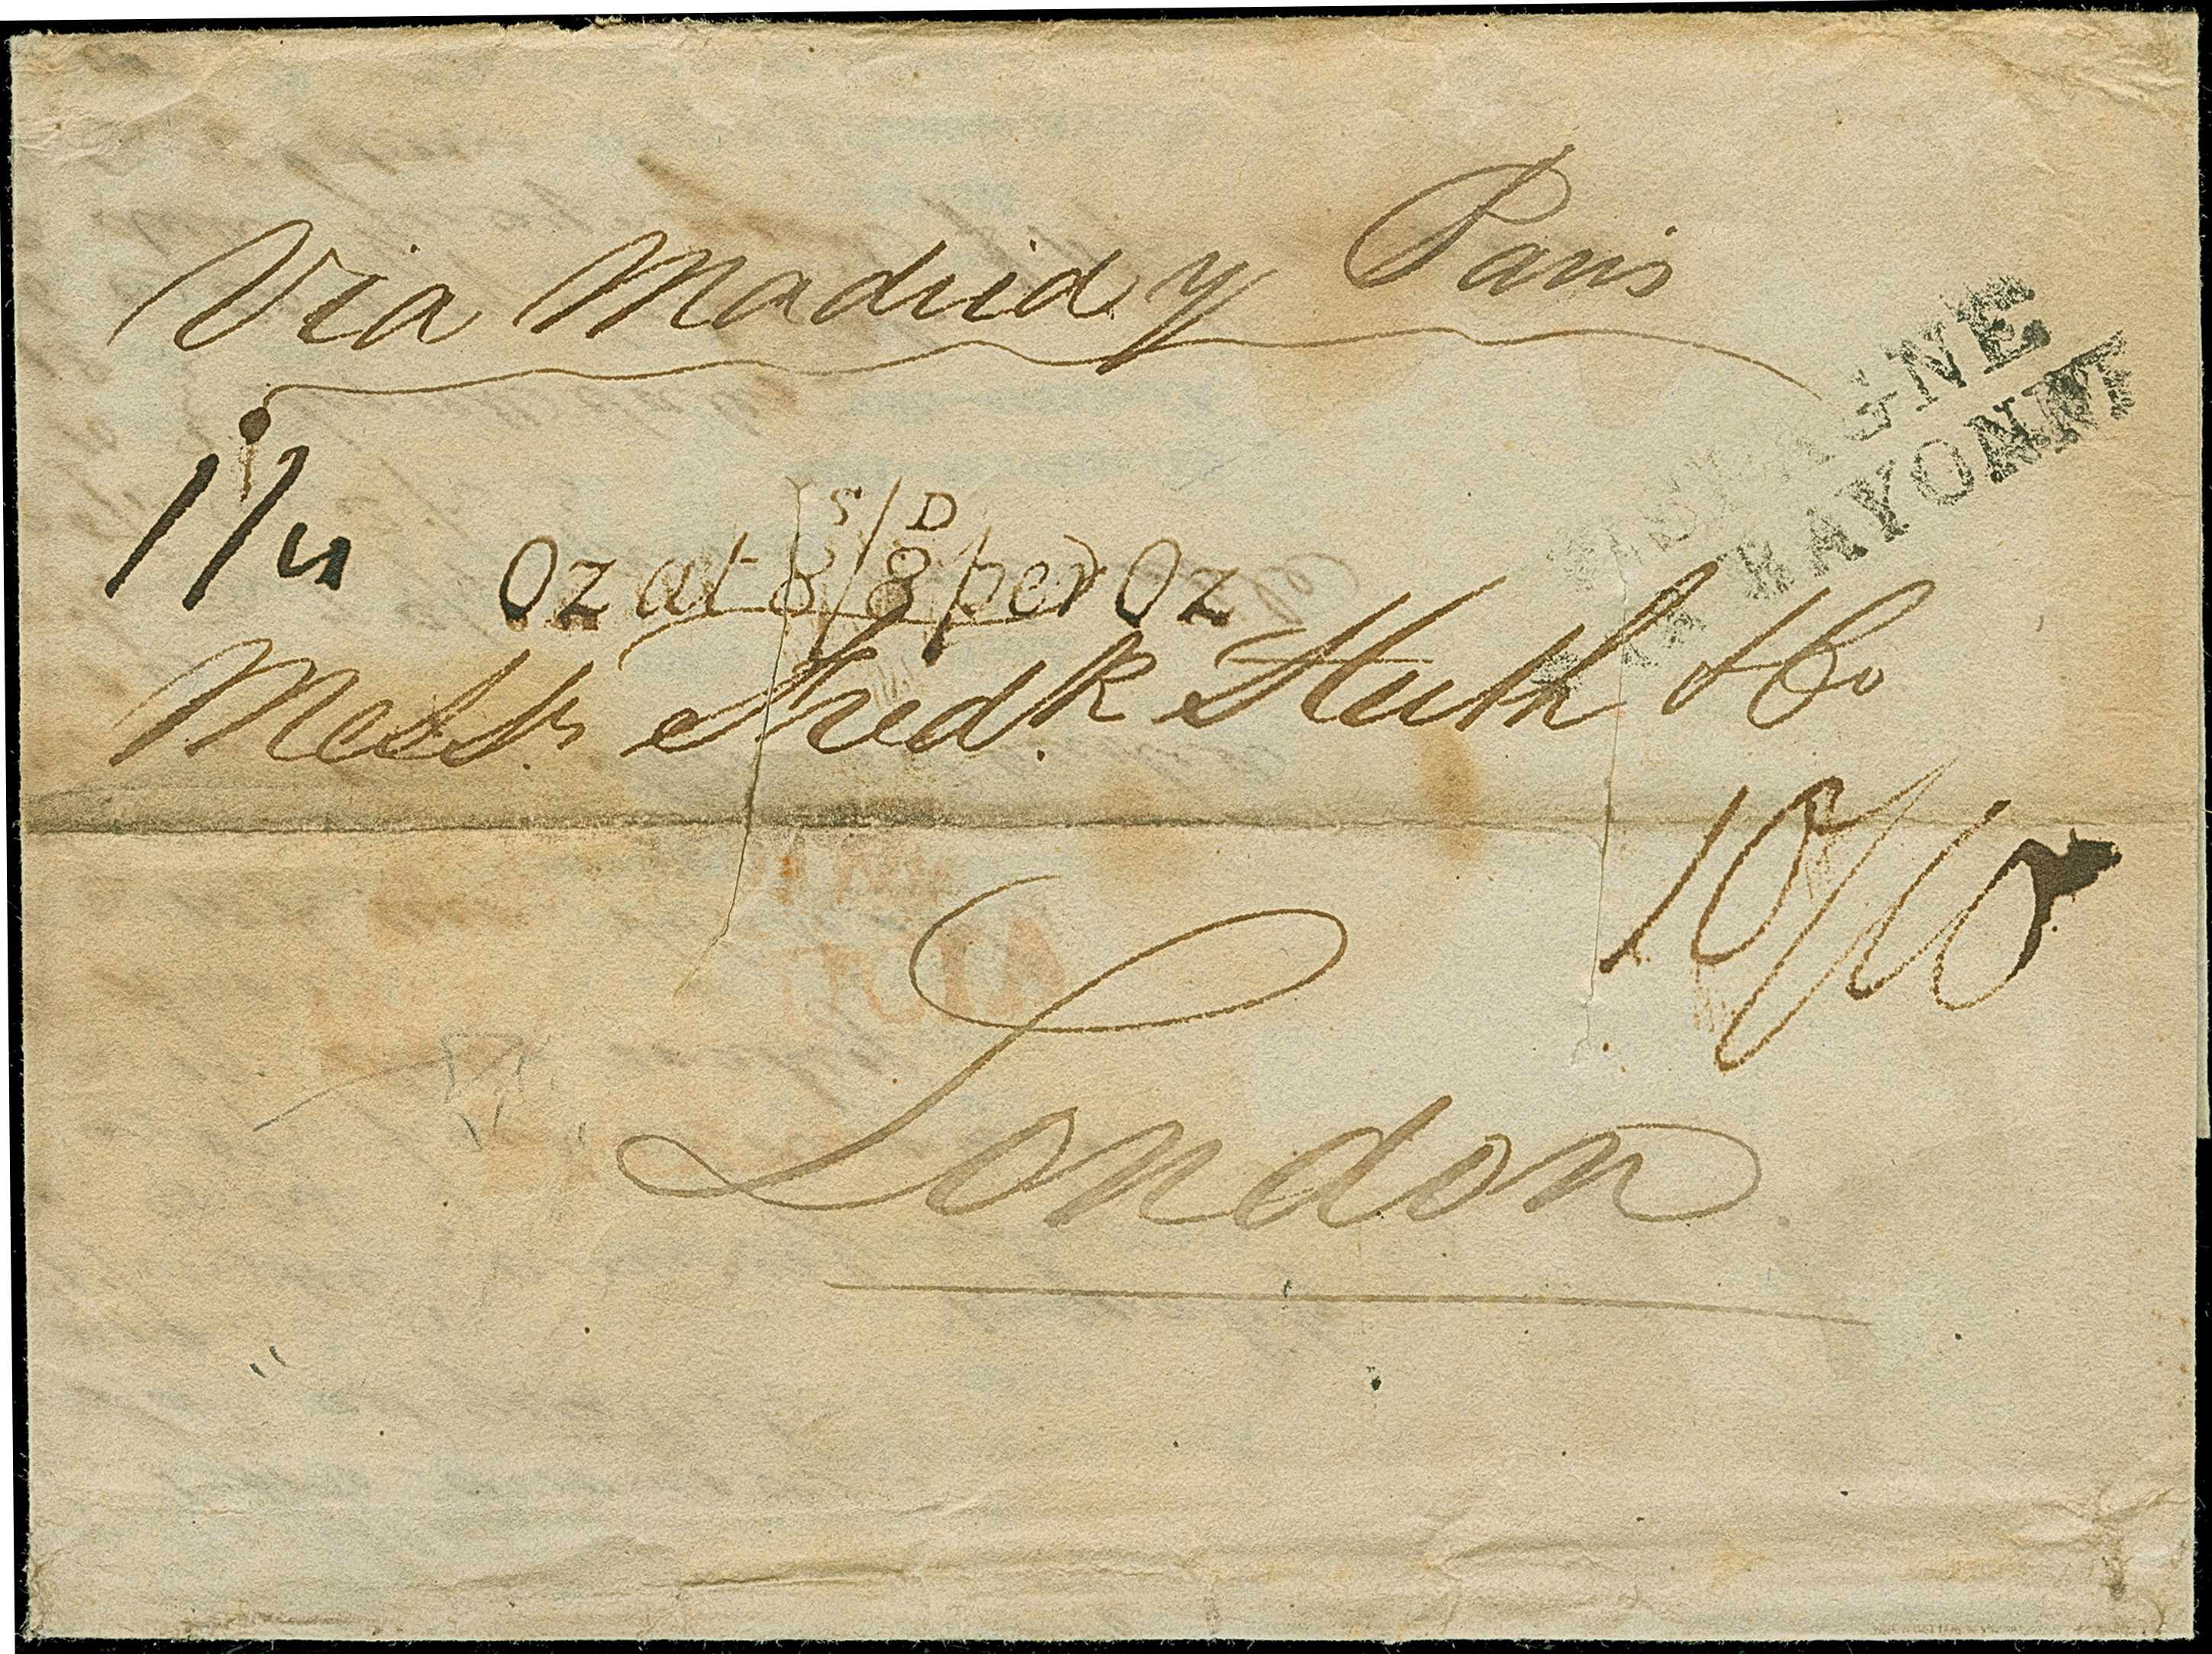 Via Madrid y Paris
ESPAGNE
PAR BAYONNE
S/D
1 1/4 Oz at 8/8 per Oz
Messrs. Fredk. Huth & Co
10/10
London